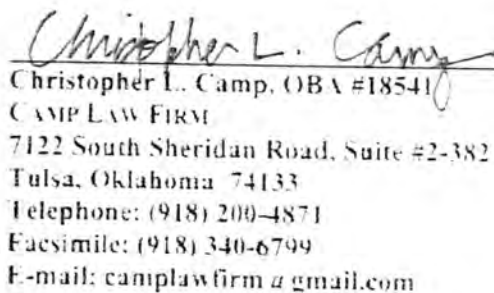 Christopher L. Camp
Christopher L. Camp, OBA #18541
CAMP LAW FIRM
7122 South Sheridan Road, Suite #2-382
Tulsa, Oklahoma 74133
Telephone: (918) 200-4871
Facsimile: (918) 340-6799
E-mail: camplawfirm@gmail.com